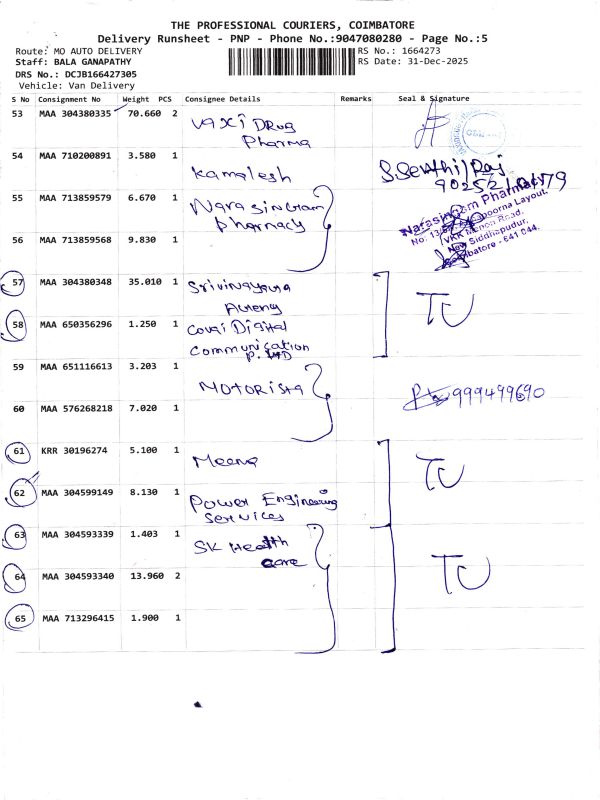 THE PROFESSIONAL COURIERS, COIMBATORE
Delivery Runsheet - PNP - Phone No.:9047080280 - Page No.:5
Route: MO AUTO DELIVERY RS No.: 1664273
Staff: BALA GANAPATHY RS Date: 31-Dec-2025
DRS No.: DCJB166427305
Vehicle: Van Delivery
S No Consignment No Weight PCS Consignee Details Remarks Seal & Signature
53 MAA 304380335 70.660 2 Vaxi Drug
Pharma
54 MAA 710200891 3.580 1 Kamalesh
55 MAA 713859579 6.670 1 Narasingam
Pharmacy
Narasingam Pharmacy
New Siddhapudur,
56 MAA 713859568 9.830 1
57 MAA 304380348 35.010 1 TU
58 MAA 650356296 1.250 1 Covai Digital
Communication
P. LTD
59 MAA 651116613 3.203 1 Motorista
60 MAA 576268218 7.020 1
61 KRR 30196274 5.100 1 Meena TU
62 MAA 304599149 8.130 1 Power Engineering
Services
63 MAA 304593339 1.403 1 SK Health
care
64 MAA 304593340 13.960 2 TU
65 MAA 713296415 1.900 1